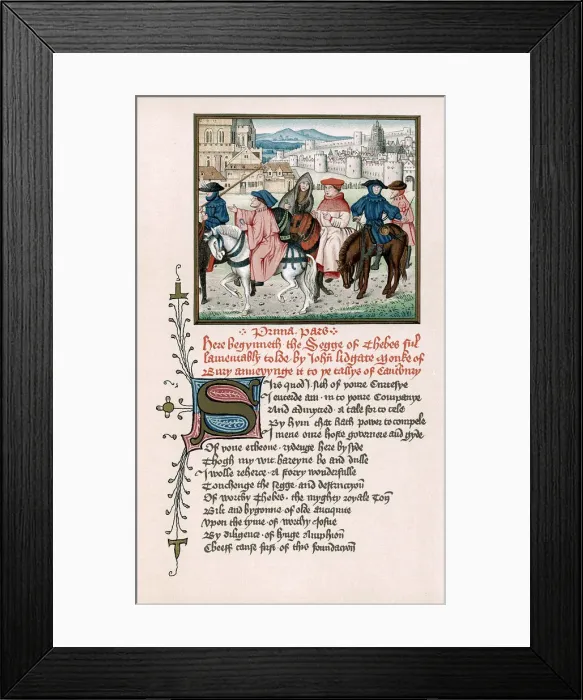 Prima Pars
Here begynneth the Segge of Thebes ful
lamentably tolde by John lidgate Monke of
Bury annexynge it to ye tallys of Cantbury
Sirs quod I sith of youre Curtesye
I entrede am in to youre Companye
And admytted a tale for to telle
By hym that hath power to compele
I mene oure hoste governere and gyde
Of yone echeone rydenge here by syde
Thogh my wit bareyne be and dulle
I wolle reherce a story wonderfulle
Towchynge the segge and destruccyon
Of worthy Thebes the myghty royale Ton
Bilt and bygonne of olde antiquite
Vpon the tyme of worthy Josue
By diligence of kynge Amphion
Cheeff cause first of this foundacion